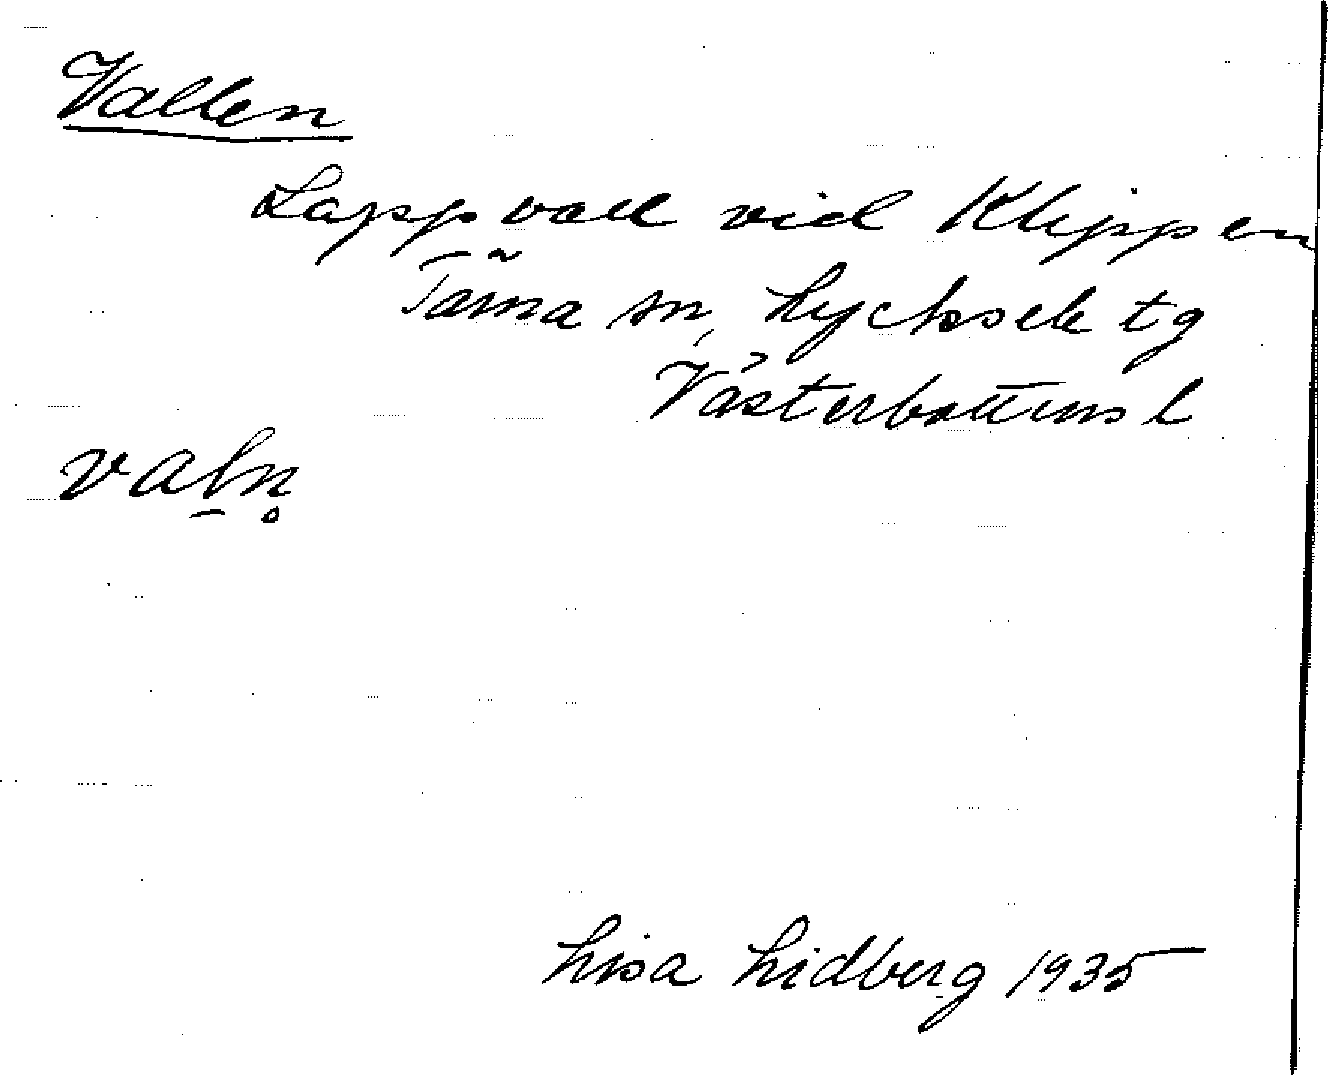 Vallen
Lappvall vid Klippen
Tärna sn, Lycksele tg
Västerbottens l
valn̥
Lisa Lidberg 1935